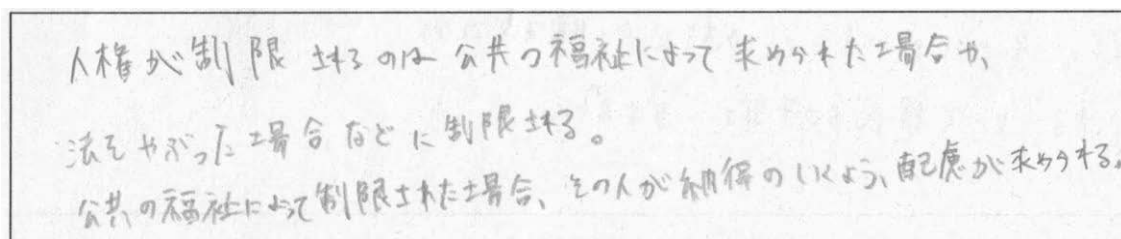 人権が制限されるのは公共の福祉によって求められた場合や、
法をやぶった場合などに制限される。
公共の福祉によって制限された場合、その人が納得のいくよう、配慮が求められる。